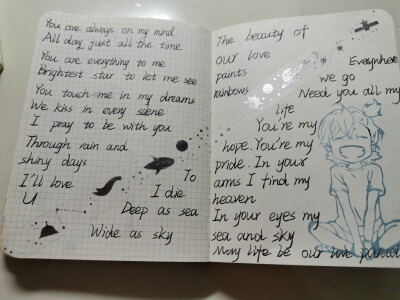 You are always on my mind
All day just all the time
You are everything to me
Brightest star to let me see
You touch me in my dreams
We kiss in every scene
I pray to be with you
Through rain and
shiny days
I'll love
U
To
I die
Deep as sea
Wide as sky
The beauty of
our love
paints
rainbows
Everywhere
we go
Need you all my
life
You're my
hope. You're my
pride. In your
arms I find my
heaven
In your eyes my
sea and sky
May life be our love